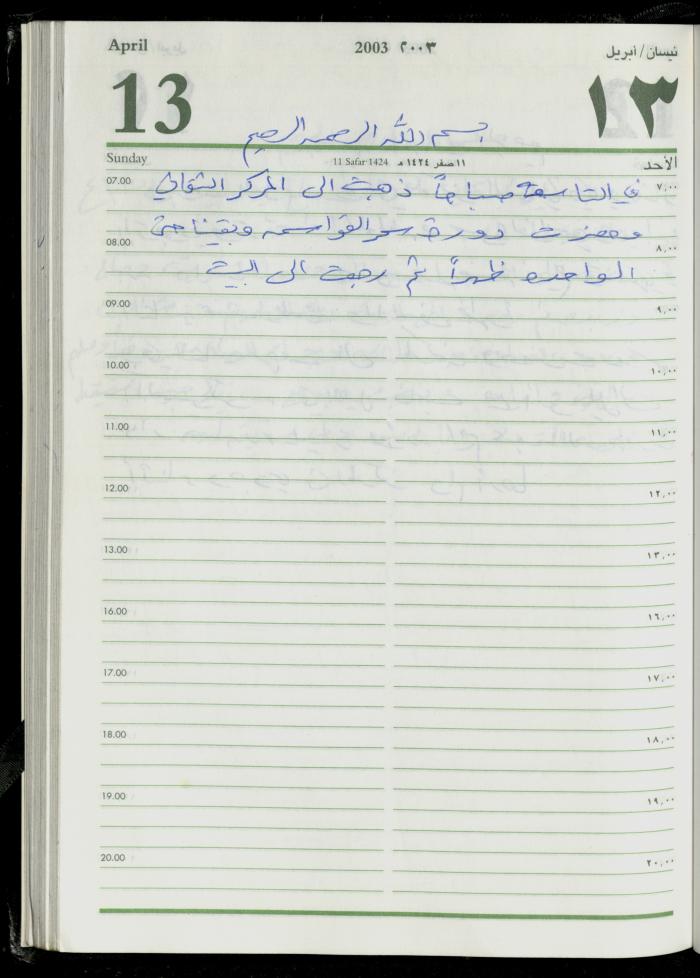 April 2003 ٢٠٠٣ نيسان/أبريل
13 ١٣
بسم الله الرحمن الرحيم
Sunday 11 Safar 1424 ١١ صفر ١٤٢٤ هـ الأحد
07.00 في التاسعة صباحاً ذهبت الى المركز الثقافي ٧,٠٠
وحضرت دورة سمر القواسمه وبقينا حتى
08.00 ٨,٠٠
الواحده ظهراً ثم رجعت الى البيت
09.00 ٩,٠٠
10.00 ١٠,٠٠
11.00 ١١,٠٠
12.00 ١٢,٠٠
13.00 ١٣,٠٠
16.00 ١٦,٠٠
17.00 ١٧,٠٠
18.00 ١٨,٠٠
19.00 ١٩,٠٠
20.00 ٢٠,٠٠